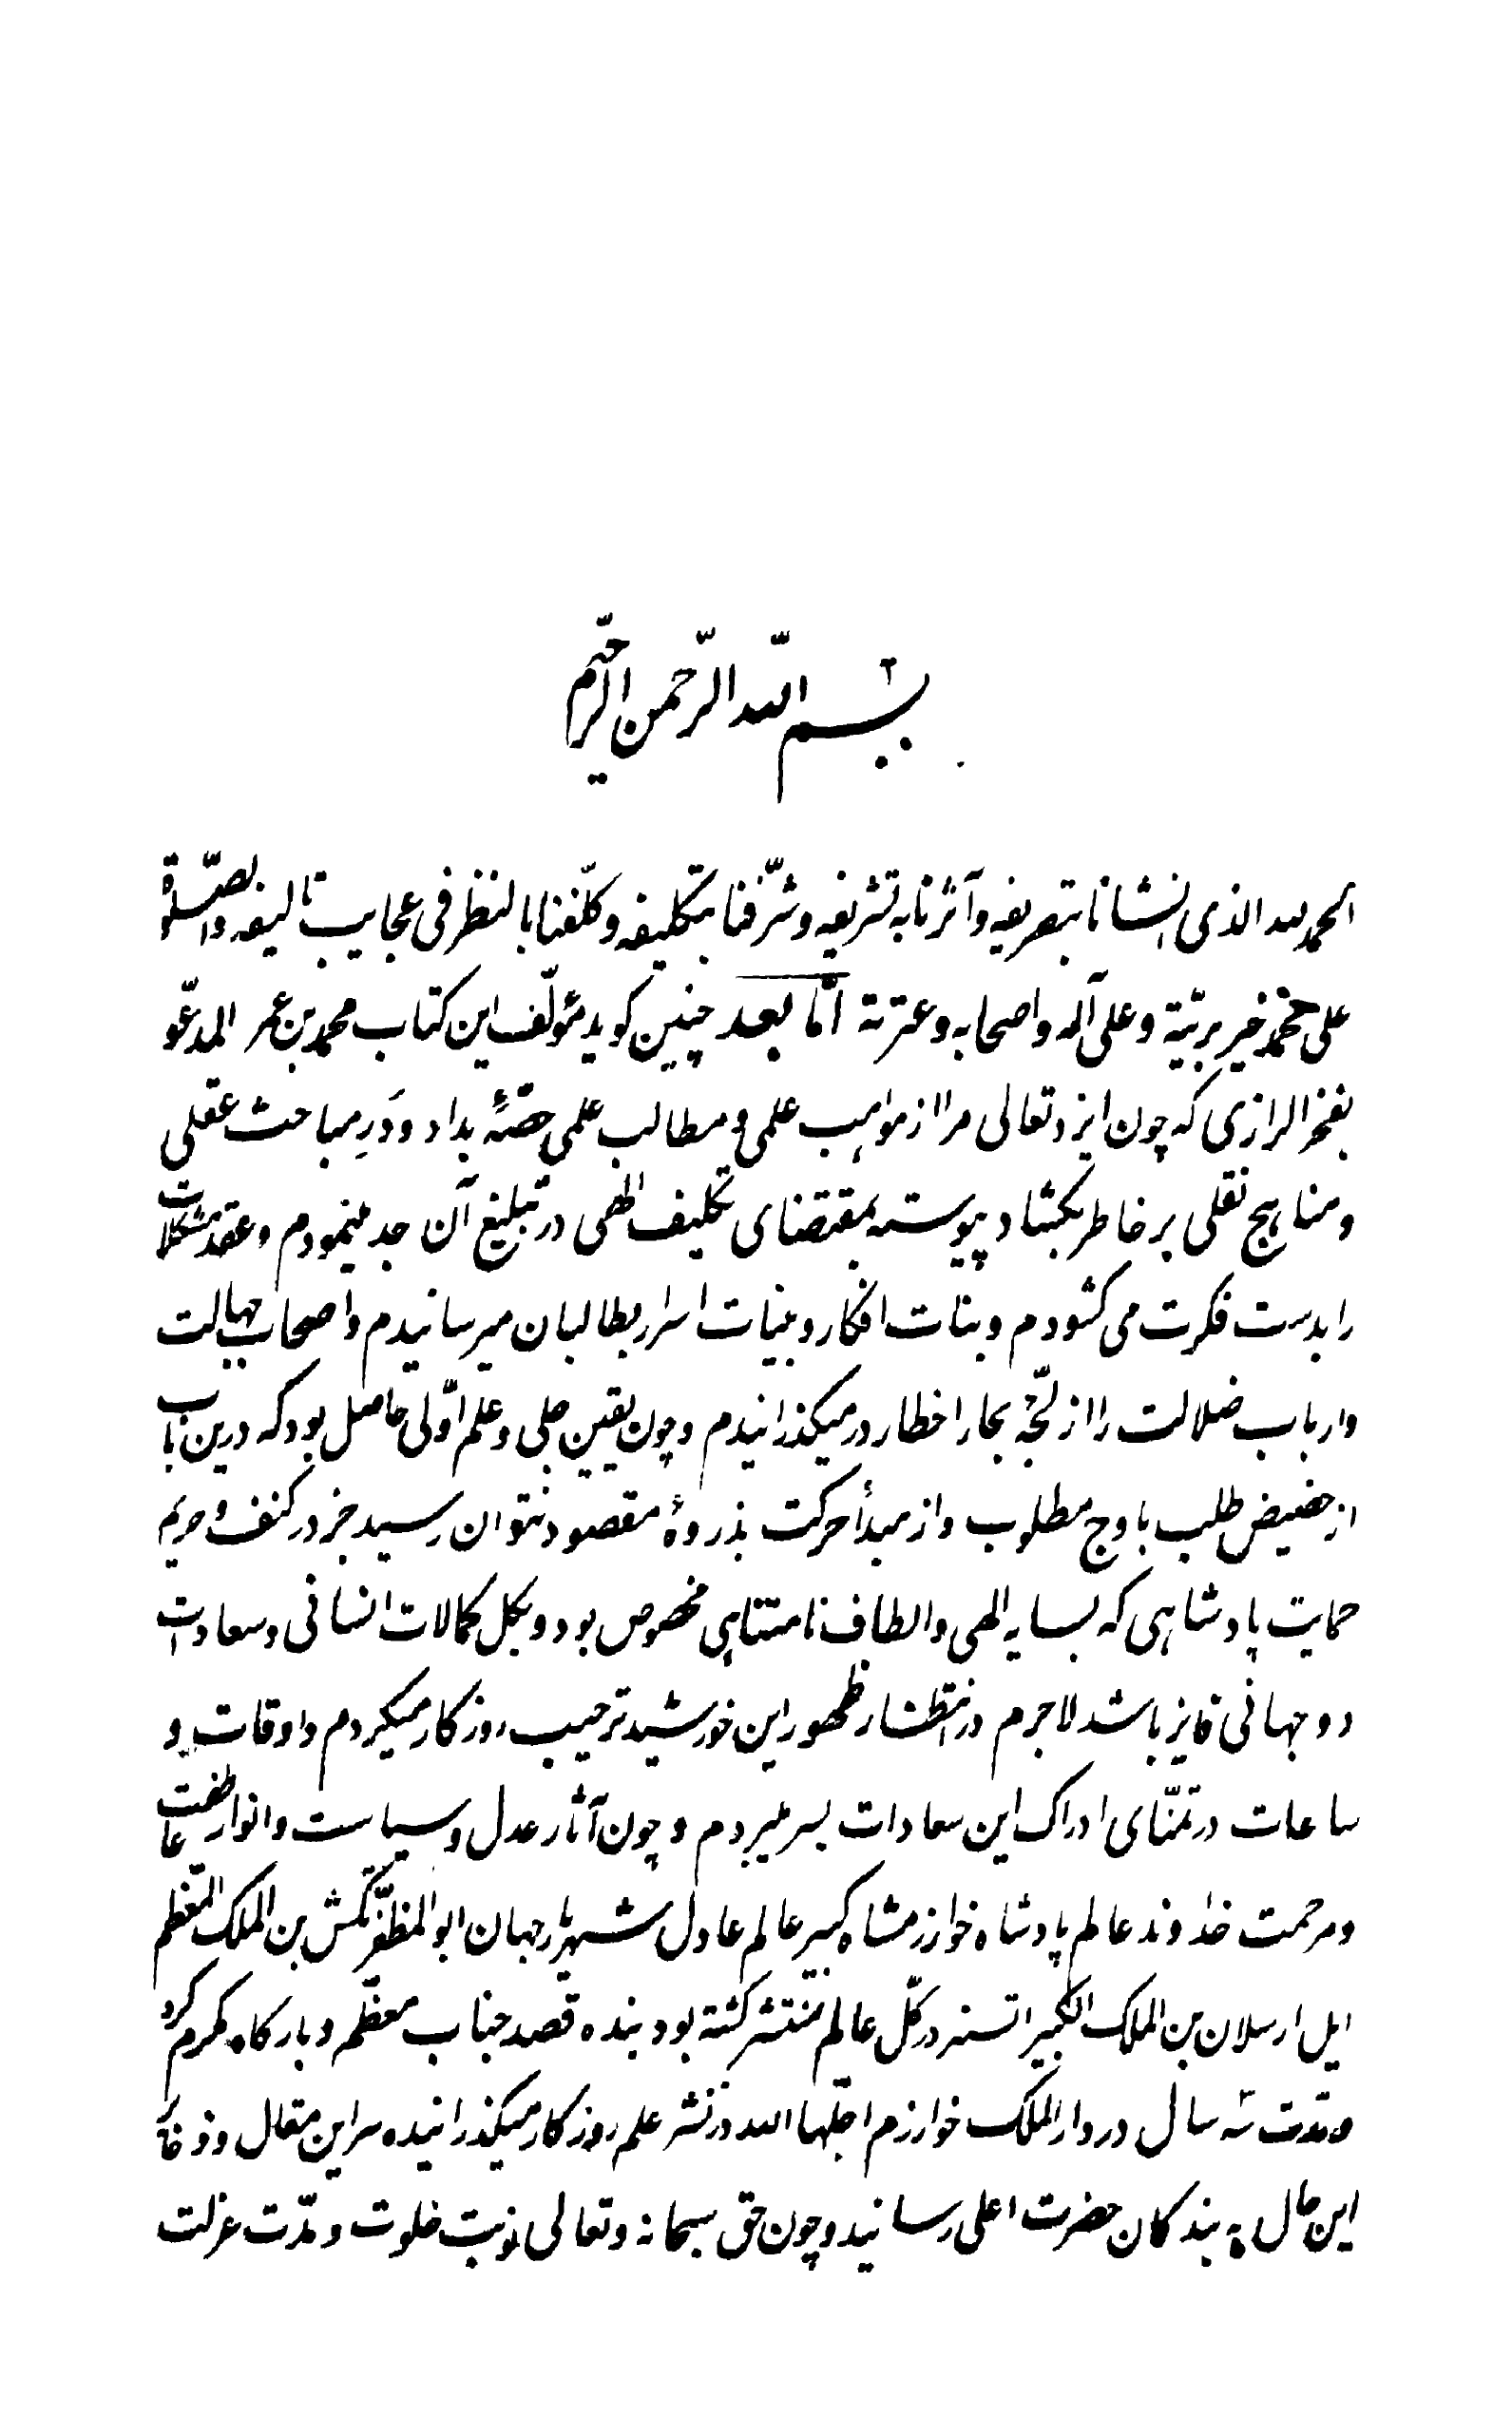 بسم الله الرّحمن الرّحیم
الحمد لله الذی انشانا بتصریفه وآثرنا به تشریفه وشرّفنا بتکلیفه وکلّفنا بالنظر فی عجایب تالیفه والصّلوة
علی محمّد خیر بریّته وعلی آله واصحابه وعترته امّا بعد چنین کوید مؤلّف این کتاب محمد بن عمر المدعّو
بفخر الرازی که چون ایزد تعالی مرا از مواهب علمی ومطالب علمی حصّهٔ بداد ودَرِ مباحث عقلی
ومناهج نقلی بر خاطر بکشاد پیوسته بمقتضای تکلیف الهی در تبلیغ آن جد مینمودم وعقد مشکلات
را بدست فکرت می کشودم وبنات افکار وبنیات اسرار بطالبان میرسانیدم واصحاب جهالت
وارباب ضلالت را از لجّهٔ بحار اخطار در میکذرانیدم وچون یقین جلی وعلم اوّلی حاصل بود که درین باب
از حضیض طلب باوج مطلوب واز مبدأ حرکت بذروهٔ مقصود نتوان رسید جز در کنف وحریم
حمایت پادشاهی که بسایه الهی والطاف نامتناهی مخصوص بود وبکل کمالات انسانی وسعادات
دو جهانی فایز باشد لاجرم در انتظار ظهور این خورشید ترحیب روزکار میکردم واوقات و
ساعات در تمنّای ادراک این سعادات بسر میبردم وچون آثار عدل وسیاست وانوار عاطفت
ومرحمت خداوند عالم پادشاه خوارزمشاه کبیر عالم عادل شهریار جهان ابوالمظفّر تکش بن الملک المعظم
ایل ارسلان بن الملک الکبیر اتسز در کلّ عالم منتشر کشته بود بنده قصد جناب معظّم وبارکاه مکرم کرد
ومدّت سه سال در دار الملک خوارزم اجلّها الله در نشر علم روزکار میکذرانیده سر این مقال وذخایر
این حال به بندکان حضرت اعلی رسانید وچون حق سبحانه وتعالی نوبت خلوت ومدّت عزلت